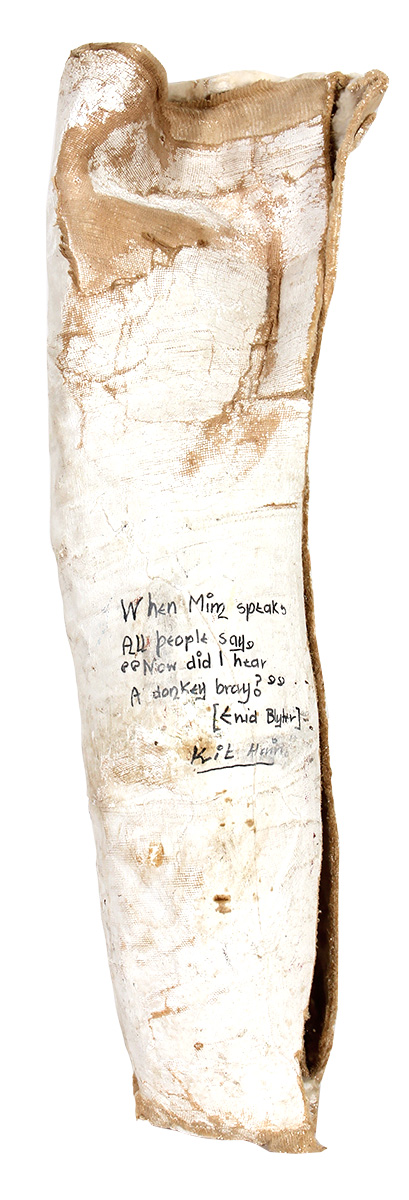 When Mim speaks
All people say,
"Now did I hear
A donkey bray?" ..
[Enid Blyter].
Kit